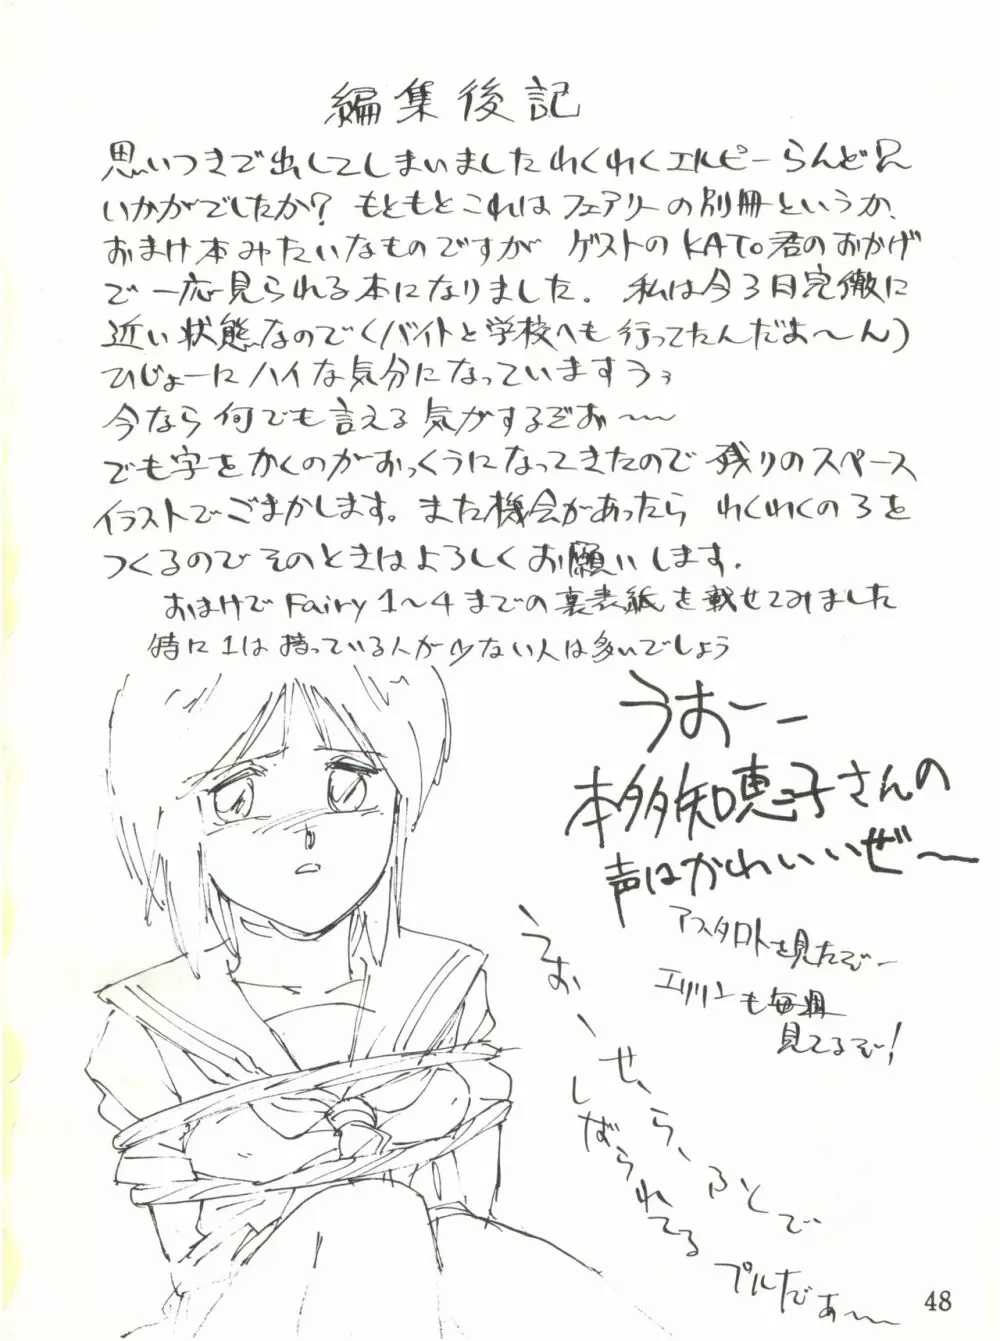 編集後記
思いつきで出してしまいましたわくわくエルピーらんど兄
いかがでしたか？ もともとこれは フェアリーの別冊というか、
おまけ本みたいなものですが ゲストのKATO君のおかげ
で一応見られる本になりました. 私は今3日完徹に
近い状態なので(バイトと学校へも行ってたんだよ〜ん)
ひじょーにハイな気分になっていますうぅ
今なら何でも言える気がするぞお〜〜
でも字をかくのがおっくうになってきたので 残りのスペース
イラストでごまかします。また機会があったら わくわくの3を
つくるのでそのときはよろしくお願いします.
おまけでFairy 1〜4までの裏表紙を載せてみました
特に1は持っている人が少ない人は多いでしょう
うおーー
本多知恵子さんの
声はかわいいぜ〜
アスタロトを見たぞー
エリリンも毎週
見てるぞー!
うおーーせ、らーふくで
しばられてる
プルだぁ〜〜
48